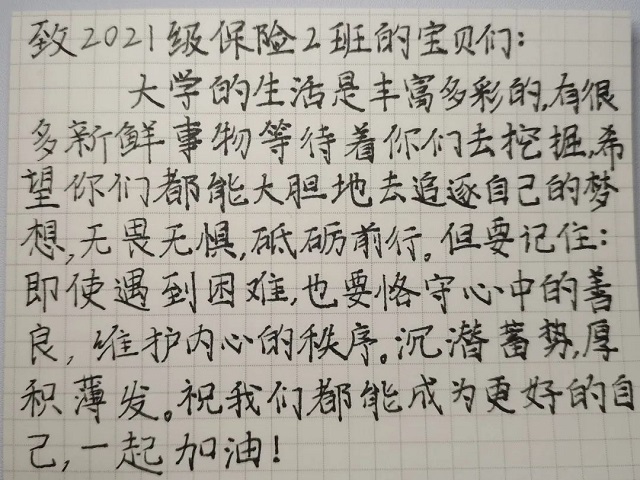 致2021级保险2班的宝贝们:
大学的生活是丰富多彩的,有很
多新鲜事物等待着你们去挖掘,希
望你们都能大胆地去追逐自己的梦
想,无畏无惧,砥砺前行。但要记住:
即使遇到困难,也要恪守心中的善
良,维护内心的秩序。沉潜蓄势,厚
积薄发。祝我们都能成为更好的自
己,一起加油!